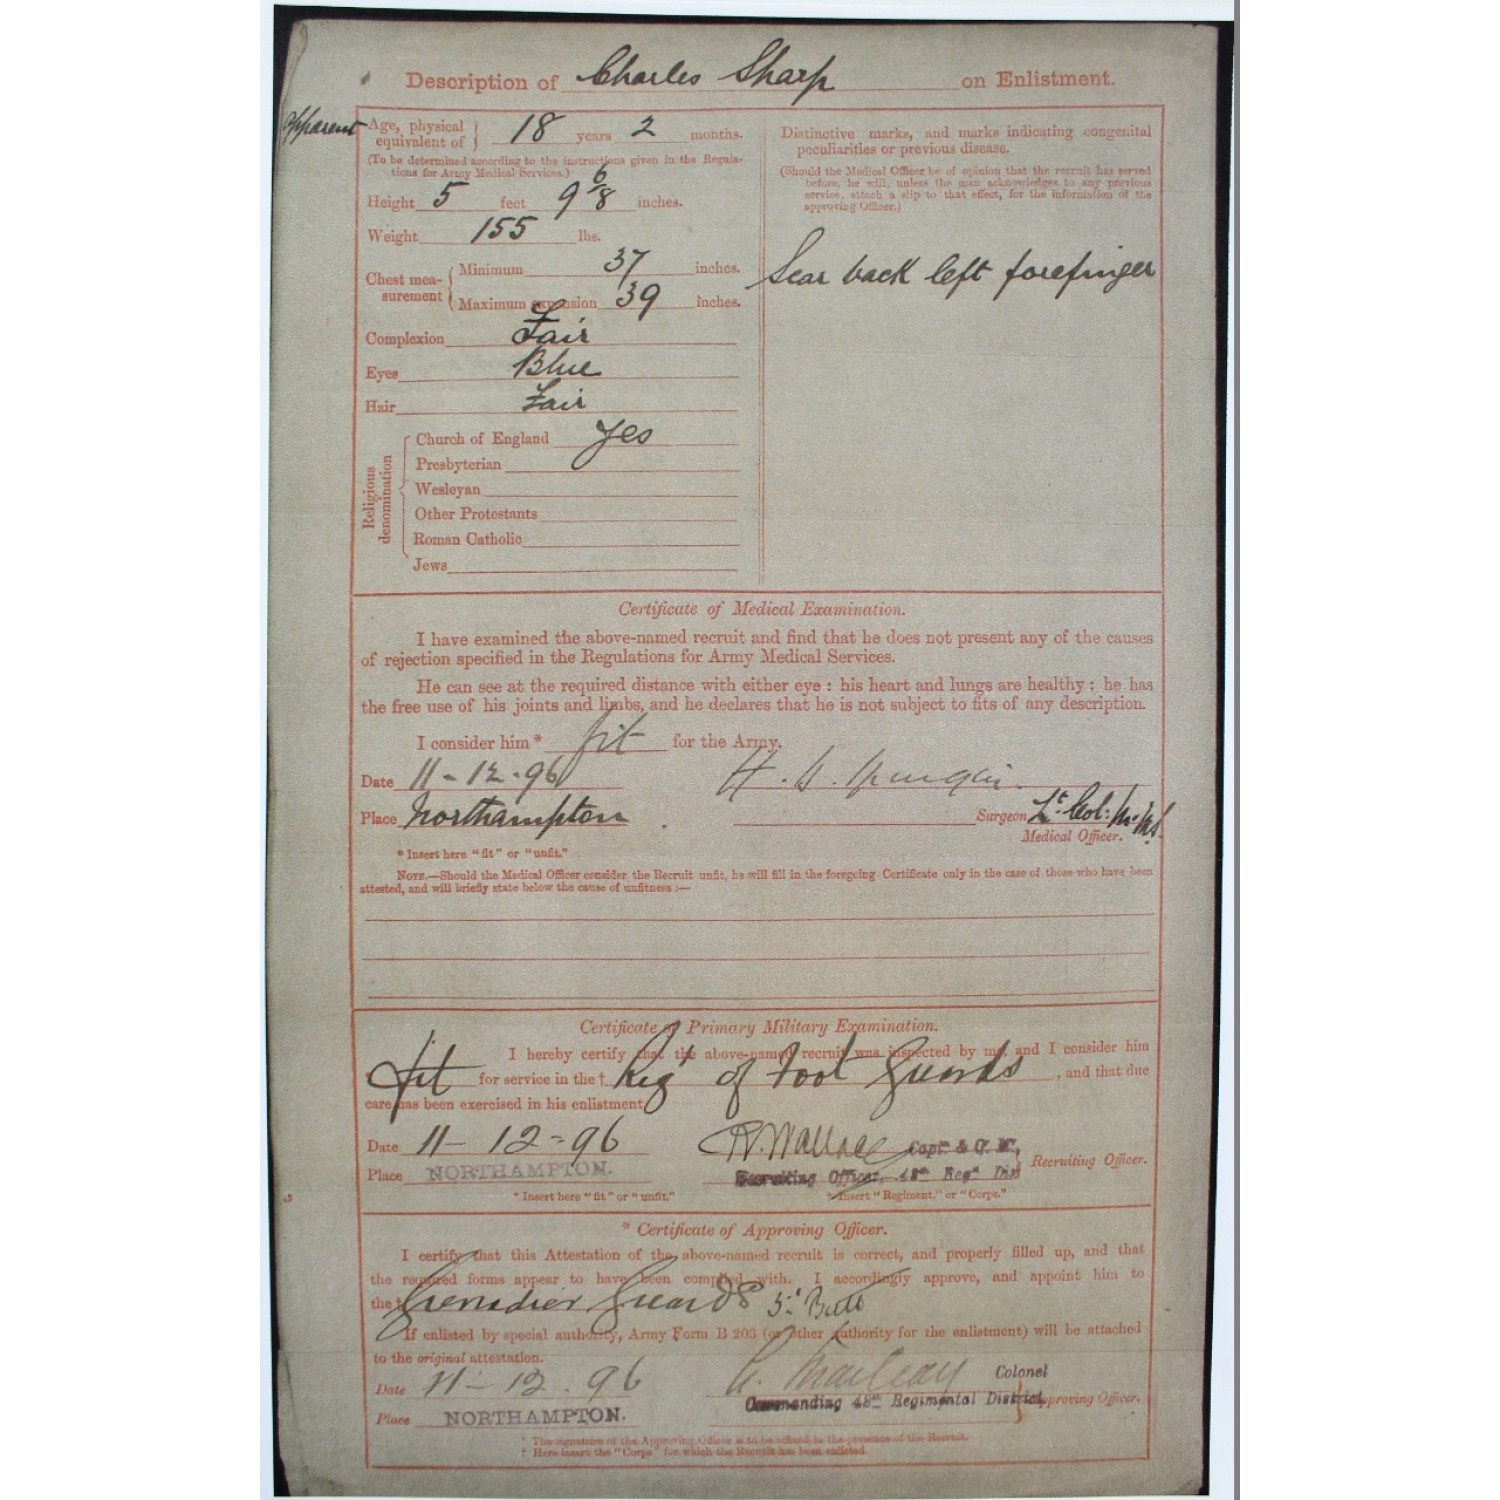 Description of Charles Sharp on Enlistment.
apparent Age, physical equivalent of } 18 years 2 months.
(To be determined according to the instructions given in the Regula-
tions for Army Medical Services.)
Height 5 feet 9 6/8 inches.
Weight 155 lbs.
Chest mea-
surement { Minimum 37 inches.
Maximum expansion 39 inches.
Complexion Fair
Eyes Blue
Hair Fair
Religious denomination
Church of England Yes
Presbyterian
Wesleyan
Other Protestants
Roman Catholic
Jews
Distinctive marks, and marks indicating congenital
peculiarities or previous disease.
(Should the Medical Officer be of opinion that the recruit has served
before, he will, unless the man acknowledges to any previous
service, attach a slip to that effect, for the information of the
approving Officer.)
Scar back left forefinger
Certificate of Medical Examination.
I have examined the above-named recruit and find that he does not present any of the causes
of rejection specified in the Regulations for Army Medical Services.
He can see at the required distance with either eye: his heart and lungs are healthy; he has
the free use of his joints and limbs, and he declares that he is not subject to fits of any description.
I consider him * fit for the Army.
Date 11-12-96
Place Northampton
Surgeon Lt. Col:
Medical Officer.
* Insert here "fit" or "unfit."
NOTE.—Should the Medical Officer consider the Recruit unfit, he will fill in the foregoing Certificate only in the case of those who have been
attested, and will briefly state below the cause of unfitness:—
Certificate of Primary Military Examination.
I hereby certify that the above-named recruit was inspected by me, and I consider him
fit for service in the † Regt of Foot Guards, and that due
care has been exercised in his enlistment
Date 11-12-96 R. Wallace Capt. & Q. M.,
Place NORTHAMPTON. Recruiting Officer, 48th Regl Dist Recruiting Officer.
* Insert here "fit" or "unfit." † Insert "Regiment," or "Corps."
* Certificate of Approving Officer.
I certify that this Attestation of the above-named recruit is correct, and properly filled up, and that
the required forms appear to have been complied with. I accordingly approve, and appoint him to
the † Grenadier Guards
If enlisted by special authority, Army Form B 203 (or other authority for the enlistment) will be attached
to the original attestation.
Date 11-12.96 Colonel
Commanding 48th Regimental District, Approving Officer.
Place NORTHAMPTON.
* The signature of the Approving Officer is to be affixed in the presence of the Recruit.
† Here insert the "Corps" for which the Recruit has been enlisted.